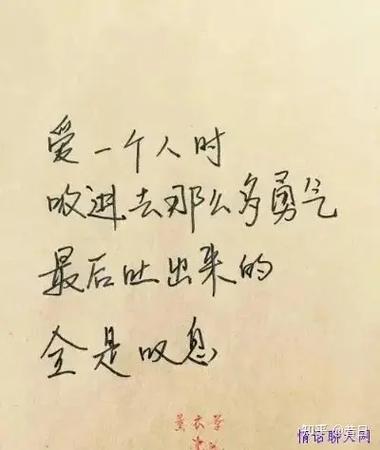 爱一个人时
吸进去那么多勇气
最后吐出来的
全是叹息
知乎 @昔日
情话聊天网